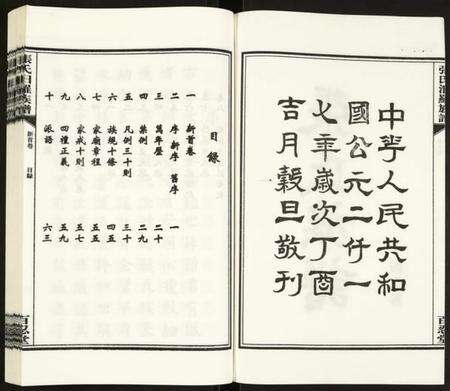 張氏汨羅族譜
百忍堂
中華人民共和
國公元二仟一
七年歲次丁酉
吉月穀旦敬刊
目錄
一 新首卷
二 序 新序 舊序 一
三 萬年歷 二十
四 例 二九
五 凡例三十則 三十
六 族統十條 四五
七 家廟章程 五五
八 家戒十則 五七
九 四禮正義 五九
十 派語 六三
張氏汨羅族譜
新首卷 目錄
百忍堂